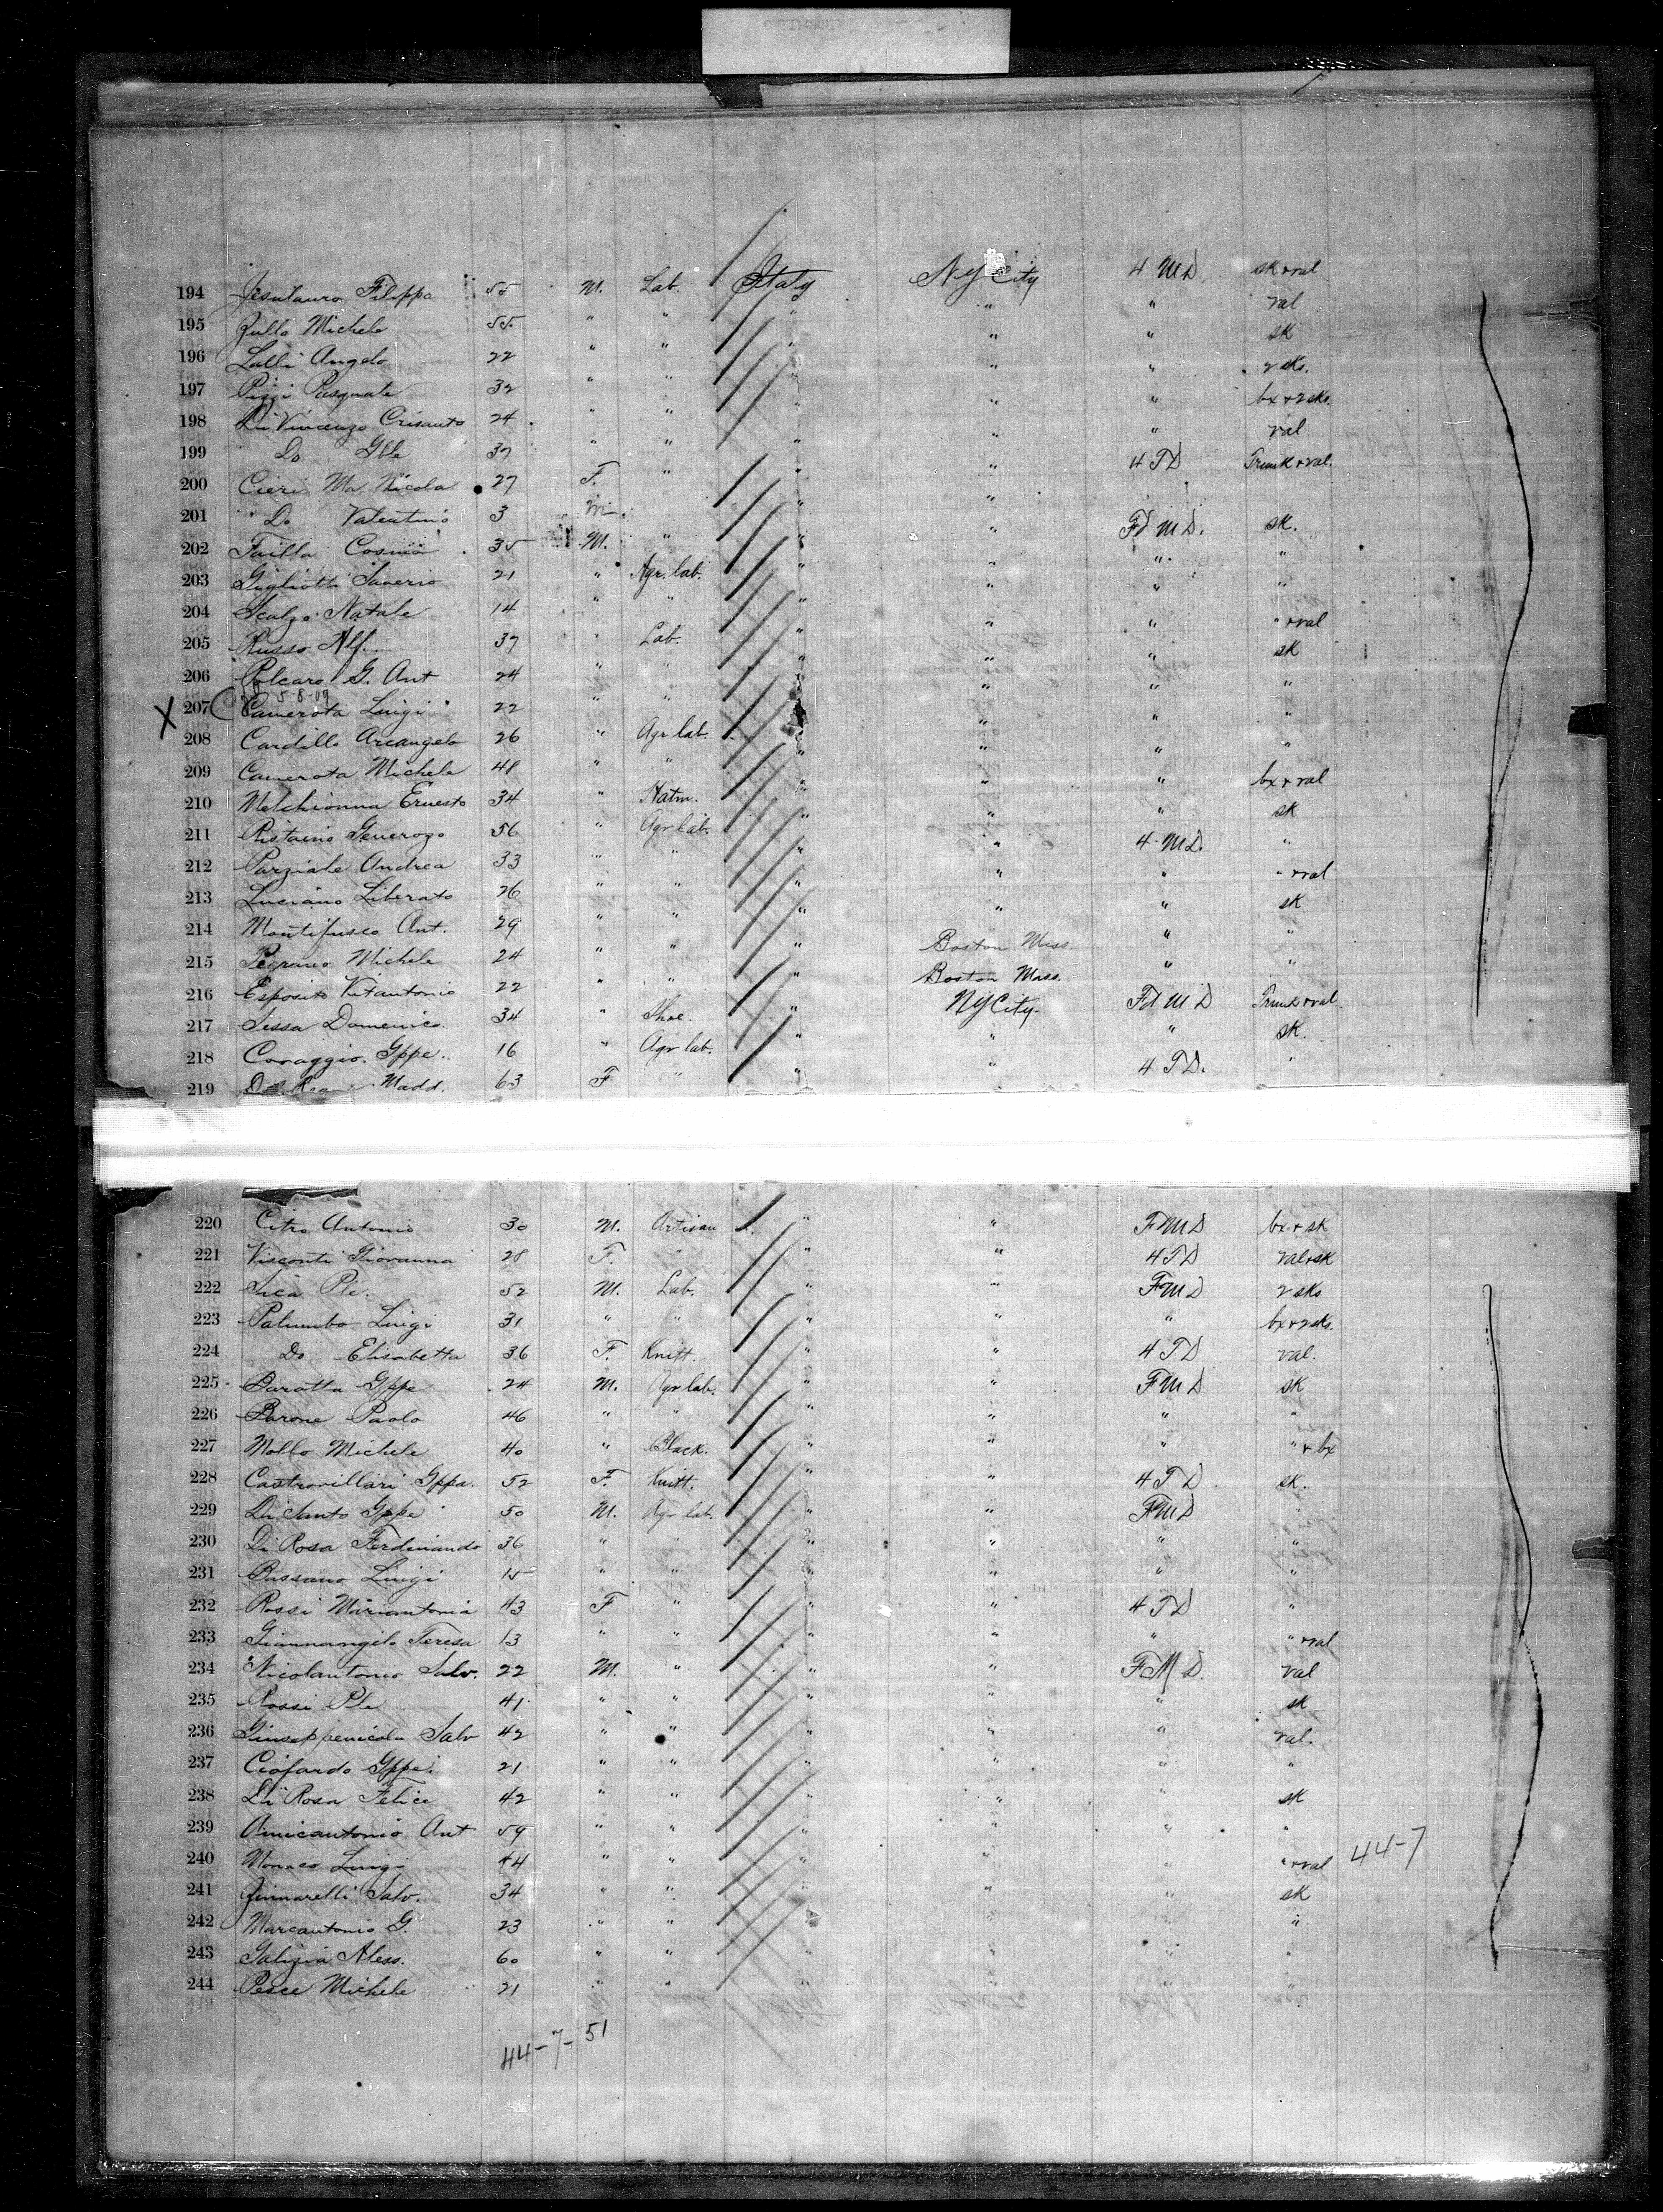 194 Jesutauro Filippo 55 M. Lab. Italy NY City 4 MD sk & val
195 Zullo Michele 55 " " " " " val
196 Lalli Angelo 22 " " " " " sk
197 Pizzi Pasquale 32 " " " " " 2 sks.
198 Di Vincenzo Crisanto 24 " " " " " bx & 2 sks.
199 Do Gble 37 " " " " " val
200 Cieri Ma Nicola 27 F. " " " 4 TD Trunk & val.
201 Do Valentino 3 m. " "
202 Failla Cosimo 35 M. " " " Fd MD. sk.
203 Gigliotti Saverio 21 " Agr. lab. " " " "
204 Scalzo Natale 14 " " " " " "
205 Russo Alf. 37 " Lab. " " " " & val
206 Polcaro G. Ant 24 " " " " " sk
5-8-09
X 207 Camerota Luigi 22 " " " " " "
208 Cardillo Arcangelo 26 " Agr lab. " " " "
209 Camerota Michele 48 " " " " " "
210 Melchionna Ernesto 34 " " " " bx & val
211 Pistaino Generoso 56 " Agr lab. " " " sk
212 Parziale Andrea 33 " " " " 4 MD. "
213 Luciano Liberato 26 " " " " " " & val
214 Montifusco Ant. 29 " " " " " sk
215 Michele 24 " " " Boston Mass " "
216 Esposito Vitantonio 22 " " " Boston Mass. " "
217 Sessa Domenico 34 " Shoe. " NY City. Fd MD Trunk & val.
218 Coraggio Gppe. 16 " Agr lab. " " " sk.
219 Madd. 63 F " " " 4 TD. "
220 Citro Antonio 30 M. Artisan " " FMD bx & sk
221 Visconti Giovanna 28 F. " " " 4 TD val & sk
222 Sica Ple. 52 M. Lab. " " FMD 2 sks
223 Palumbo Luigi 31 " " " " " bx & 2 sks.
224 Do Elisabetta 36 F. Knitt. " " 4 TD val.
225 Baratta Gppe 24 M. Agr lab. " " FMD sk
226 Barone Paolo 46 " " " " " "
227 Mollo Michele 40 " Black. " " " " & bx
228 Castrovillari Gppa. 52 F. Knitt. " " 4 TD sk.
229 Di Santo Gppe 50 M. Agr lab. " " FMD "
230 Di Rosa Ferdinando 36 " " " " " "
231 Bassano Luigi 15 " " " " " "
232 Rossi Mariantonia 43 F " " " 4 TD "
233 Giannangelo Teresa 13 " " " " " " & val
234 Nicolantonio Salv. 22 M. " " " FMD. val
235 Rossi Ple 41 " " " " " sk
236 Giuseppenicola Salv 42 " " " " " val.
237 Ciofardo Gppe. 21 " " " " " "
238 Di Rosa Felice 42 " " " " " sk
239 Amicantonio Ant 59 " " " " " "
240 Monaco Luigi 44 " " " " " " & val 44-7
241 Zinnarelli Salv. 34 " " " " " sk
242 Marcantonio G. 23 " " " " " "
243 Galizia Aless. 60 " " " " " "
244 Pesce Michele 21 " " " " " "
44-7-51